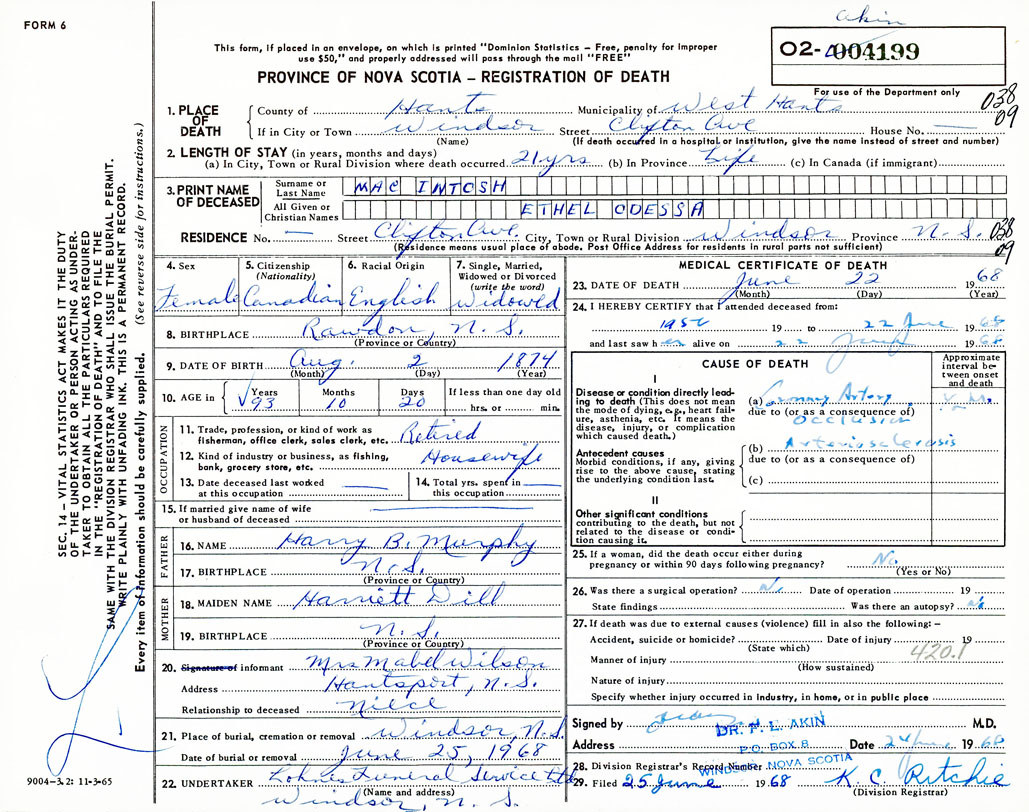 FORM 6
akin
This form, if placed in an envelope, on which is printed "Dominion Statistics – Free, penalty for improper
use $50," and properly addressed will pass through the mail "FREE"
02-004199
PROVINCE OF NOVA SCOTIA – REGISTRATION OF DEATH
For use of the Department only
038
09
1. PLACE OF DEATH County of Hants Municipality of West Hants
If in City or Town Windsor Street Clifton Ave House No. —
(Name) (If death occurred in a hospital or institution, give the name instead of street and number)
2. LENGTH OF STAY (in years, months and days)
(a) In City, Town or Rural Division where death occurred 21 yrs (b) In Province Life (c) In Canada (if immigrant)
3. PRINT NAME OF DECEASED Surname or Last Name MAC INTOSH
All Given or Christian Names ETHEL ODESSA
RESIDENCE No. — Street Clifton Ave. City, Town or Rural Division Windsor Province N. S. 038
09
(Residence means usual place of abode. Post Office Address for residents in rural parts not sufficient)
4. Sex 5. Citizenship (Nationality) 6. Racial Origin 7. Single, Married, Widowed or Divorced (write the word)
Female Canadian English Widowed
8. BIRTHPLACE Rawdon, N. S.
(Province or Country)
9. DATE OF BIRTH Aug. 2 1874
(Month) (Day) (Year)
10. AGE in Years Months Days If less than one day old
93 10 20 hrs. or min.
OCCUPATION
11. Trade, profession or kind of work as
fisherman, office clerk, sales clerk, etc. Retired
12. Kind of industry or business, as fishing,
bank, grocery store, etc. Housewife
13. Date deceased last worked
at this occupation
14. Total yrs. spent in
this occupation
15. If married give name of wife
or husband of deceased
FATHER
16. NAME Harry B. Murphy
17. BIRTHPLACE N. S.
(Province or Country)
MOTHER
18. MAIDEN NAME Harriett Dill
19. BIRTHPLACE N. S.
(Province or Country)
20. Signature of informant Mrs Mabel Wilson
Address Hantsport, N. S.
Relationship to deceased Niece
21. Place of burial, cremation or removal Windsor, N.S.
Date of burial or removal June 25, 1968
22. UNDERTAKER Lohnes Funeral Service Ltd
(Name and address)
Windsor, N. S.
MEDICAL CERTIFICATE OF DEATH
23. DATE OF DEATH June 22 1968
(Month) (Day) (Year)
24. I HEREBY CERTIFY that I attended deceased from:
19 to 22 June 1968
and last saw her alive on 22 June 1968
CAUSE OF DEATH
Approximate interval between onset and death
I
Disease or condition directly leading to death (This does not mean the mode of dying, e.g., heart failure, asthenia, etc. It means the disease, injury, or complication which caused death.)
(a) Coronary Artery
due to (or as a consequence of)
Occlusion
Antecedent causes
Morbid conditions, if any, giving rise to the above cause, stating the underlying condition last.
(b) Arteriosclerosis
due to (or as a consequence of)
(c)
II
Other significant conditions
contributing to the death, but not related to the disease or condition causing it.
25. If a woman, did the death occur either during
pregnancy or within 90 days following pregnancy? No
(Yes or No)
26. Was there a surgical operation? No Date of operation 19
State findings Was there an autopsy? No
27. If death was due to external causes (violence) fill in also the following: –
Accident, suicide or homicide? Date of injury 19
(State which)
420.1
Manner of injury
(How sustained)
Nature of injury
Specify whether injury occurred in industry, in home, or in public place
Signed by M.D.
DR. P. L. AKIN
P.O. BOX 8
WINDSOR, NOVA SCOTIA
Address Date June 1968
28. Division Registrar's Record Number
29. Filed 25 June 1968 K. C. Ritchie
(Division Registrar)
SEC. 14 – VITAL STATISTICS ACT MAKES IT THE DUTY
OF THE UNDERTAKER OR PERSON ACTING AS UNDERTAKER
TO OBTAIN ALL THE PARTICULARS REQUIRED
IN THE "REGISTRATION OF DEATH" AND TO FILE THE
SAME WITH THE DIVISION REGISTRAR WHO SHALL ISSUE THE BURIAL PERMIT.
WRITE PLAINLY WITH UNFADING INK. THIS IS A PERMANENT RECORD.
Every item of information should be carefully supplied. (See reverse side for instructions.)
9004–3.2: 11-3-65